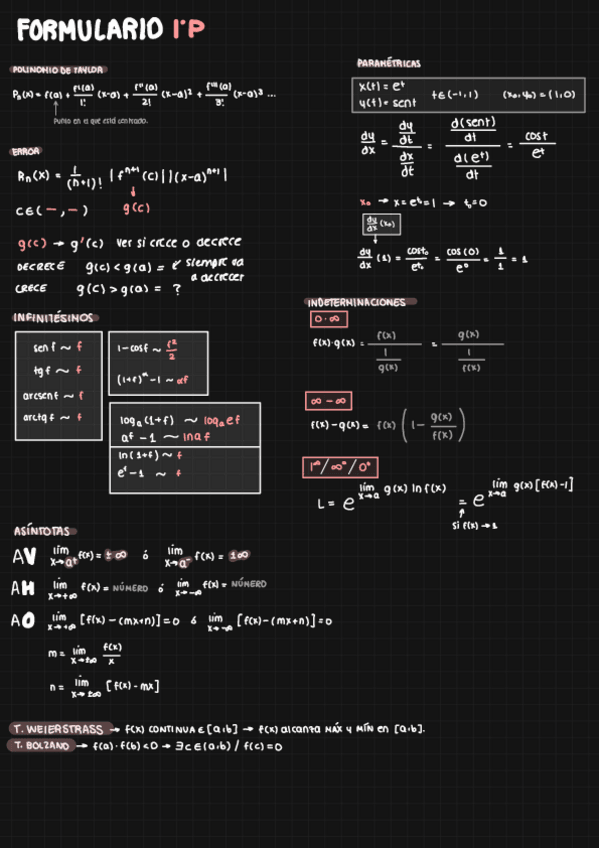 FORMULARIO 1ºP
POLINOMIO DE TAYLOR
P₃(x) = f(a) + f'(a)/1! (x-a) + f''(a)/2! (x-a)² + f'''(a)/3! (x-a)³ ...
Punto en el que está centrado.
ERROR
Rₙ(x) = 1/(n+1)! |fⁿ⁺¹(c)| |(x-a)ⁿ⁺¹|
c∈(—,—) g(c)
g(c) → g'(c) ver si crece o decrece
DECRECE g(c) < g(a) = e siempre va a acrecer
CRECE g(c) > g(a) = ?
INFINITÉSIMOS
sen f ~ f
tg f ~ f
arcsen f ~ f
arctg f ~ f
1-cos f ~ f²/2
(1+f)^α - 1 ~ αf
logₐ(1+f) ~ logₐe f
aᶠ - 1 ~ ln a f
ln(1+f) ~ f
eᶠ - 1 ~ f
PARAMÉTRICAS
x(t) = eᵗ
y(t) = sent
t∈(-1,1) (x₀,y₀) = (1,0)
dy/dx = (dy/dt)/(dx/dt) = (d(sent)/dt)/(d(eᵗ)/dt) = cost/eᵗ
x₀ → x = eᵗ = 1 → t₀ = 0
dy/dx (x₀)
dy/dx (1) = cost₀/eᵗ⁰ = cos(0)/e⁰ = 1/1 = 1
INDETERMINACIONES
0·∞
f(x)·g(x) = f(x)/(1/g(x)) = g(x)/(1/f(x))
∞ - ∞
f(x) - g(x) = f(x) (1 - g(x)/f(x))
1^∞ / ∞⁰ / 0⁰
L = e^(lím x→a g(x) ln f(x)) = e^(lím x→a g(x)[f(x)-1])
si f(x) → 1
ASÍNTOTAS
AV lím x→a⁺ f(x) = ±∞ ó lím x→a⁻ f(x) = ±∞
AH lím x→+∞ f(x) = NÚMERO ó lím x→-∞ f(x) = NÚMERO
AO lím x→+∞ [f(x) - (mx+n)] = 0 ó lím x→-∞ [f(x) - (mx+n)] = 0
m = lím x→±∞ f(x)/x
n = lím x→±∞ [f(x) - mx]
T. WEIERSTRASS → f(x) CONTINUA ∈ [a,b] → f(x) alcanza MÁX y MÍN en [a,b].
T. BOLZANO → f(a)·f(b) < 0 → ∃c∈(a,b) / f(c) = 0